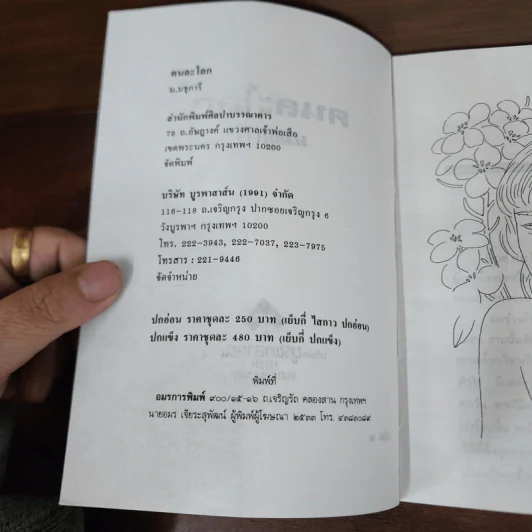 คนละโลก
ม.มธุการี
สำนักพิมพ์ศิลปาบรรณาคาร
79 ถ.อัษฎางค์ แขวงศาลเจ้าพ่อเสือ
เขตพระนคร กรุงเทพฯ 10200
จัดพิมพ์
บริษัท บูรพาสาส์น (1991) จำกัด
116-118 ถ.เจริญกรุง ปากซอยเจริญกรุง 6
วังบูรพาฯ กรุงเทพฯ 10200
โทร. 222-3943, 222-7037, 223-7975
โทรสาร : 221-9446
จัดจำหน่าย
ปกอ่อน ราคาชุดละ 250 บาท (เย็บกี่ ไสกาว ปกอ่อน)
ปกแข็ง ราคาชุดละ 480 บาท (เย็บกี่ ปกแข็ง)
พิมพ์ที่
อมรการพิมพ์ ๙๐๐/๑๕-๑๖ ถ.เจริญรัถ คลองสาน กรุงเทพฯ
นายอมร เจียระสุพัฒน์ ผู้พิมพ์ผู้โฆษณา ๒๕๓๓ โทร. ๔๓๘๓๐๘๙